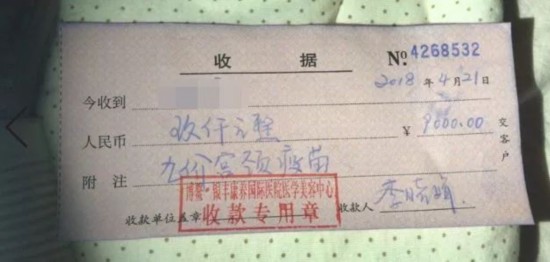 收 据
№ 4268532
2018 年 4 月 21 日
今收到
人民币 玖仟元整 ¥ 9000.00
附 注 九价宫颈疫苗
交客户
国际医院医学美容中心
收款专用章
收款单位盖章 收款人 李